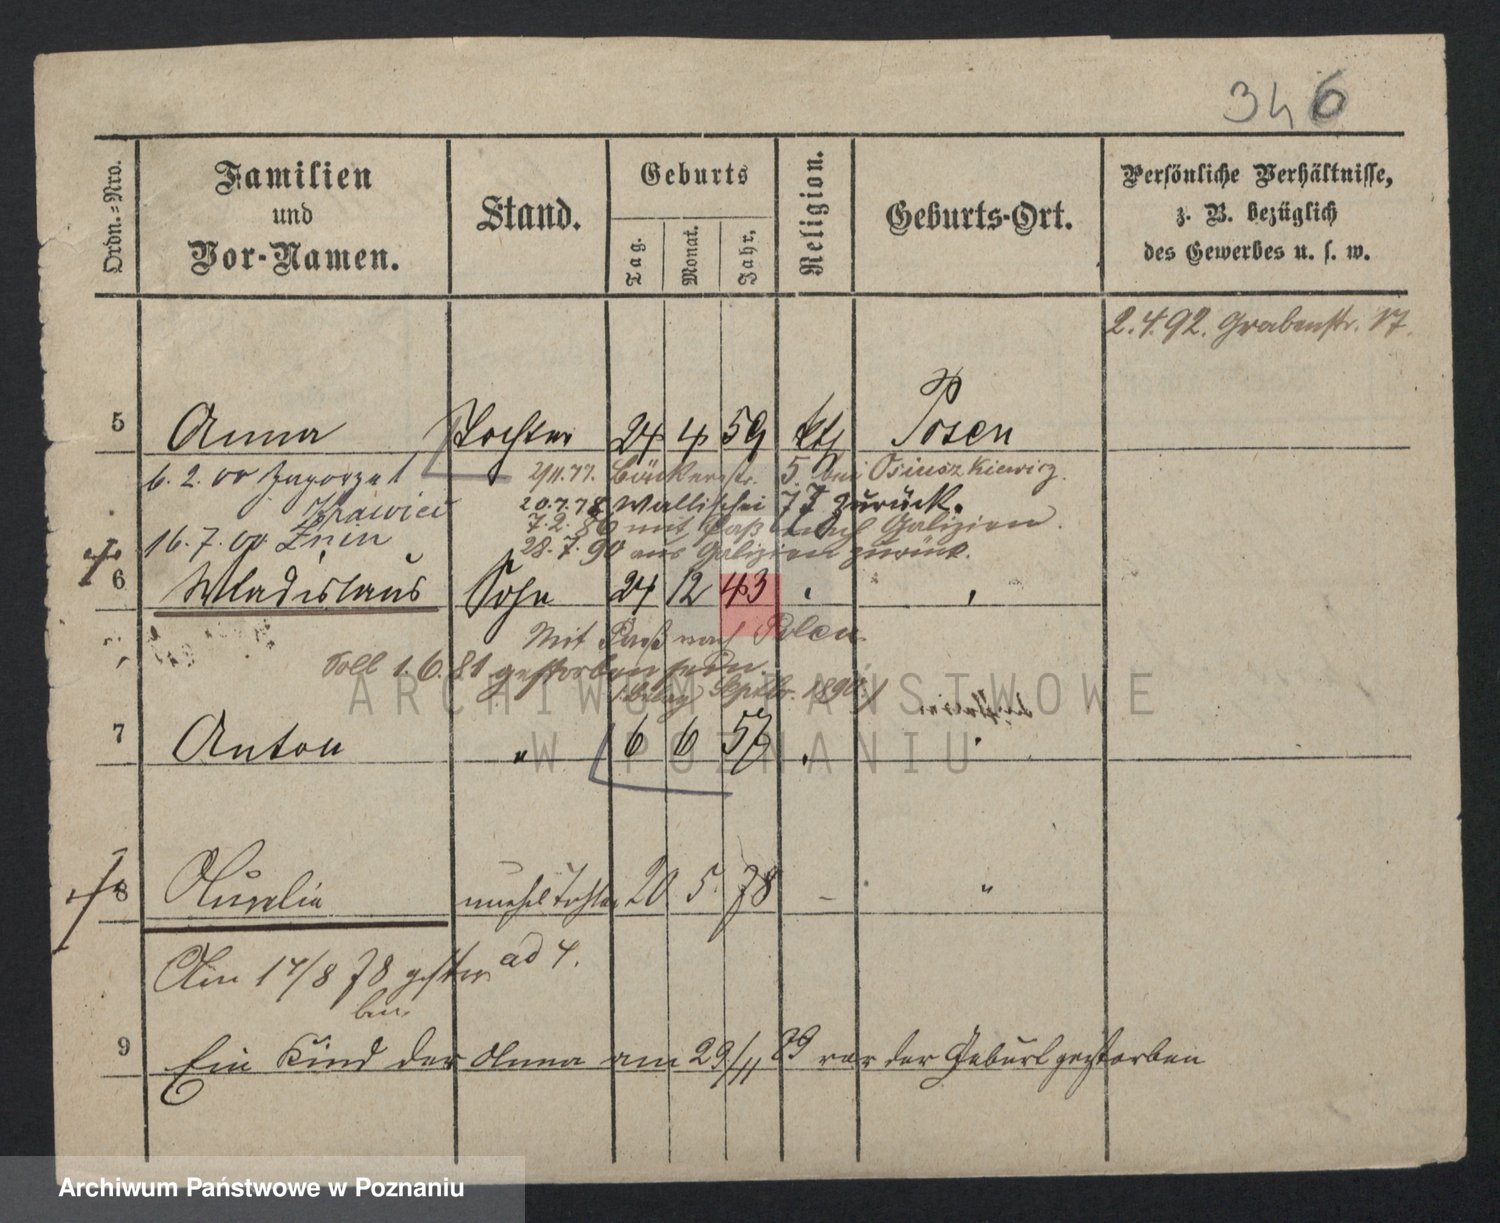 346
Ordn.=Nro.
Familien
und
Vor-Namen.
Stand.
Geburts
Tag.
Monat.
Jahr.
Religion.
Geburts-Ort.
Persönliche Verhältnisse,
z. B. bezüglich
des Gewerbes u. s. w.
2.4.92. Grabenstr. 17.
5 Anna Tochter 24 4 59 kth Posen
6.2.00
5. bei Osiuszkiewicz.
20.7.78 Wallischei 77 zurück.
7.2.80 mit Paß nach Galizien.
16.7.00 Znin
28.7.90 aus Galizien zurück.
6 Wladislaus Sohn 24 12 43
Mit Paß nach Polen.
Soll 1.6.81 gestorben sein.
Septbr. 1890
7 Anton " 6 6 57
8 Aurelia unehel Tochter 20 5 78 - "
Am 17/8 78 gestor
ben. ad 4.
9 Ein Kind der Anna am 29/11 89 vor der Geburt gestorben
ARCHIWUM PAŃSTWOWE
W POZNANIU
Archiwum Państwowe w Poznaniu